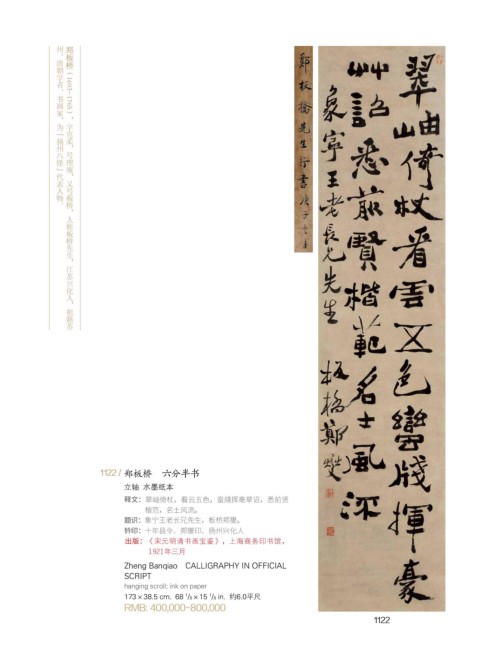 郑板桥（1693-1765），字克柔，号理庵，又号板桥，人称板桥先生，江苏兴化人，祖籍苏
州。清朝学者、书画家。为“扬州八怪”代表人物。
鄭板橋先生行書
翠岫倚杖看雲五色蠻牋揮豪
艸詔悉前賢楷範名士風流
象寧王老長兄先生 板橋鄭燮
1122 / 郑板桥 六分半书
立轴 水墨纸本
释文：翠岫倚杖，看云五色。蛮牋挥毫草诏，悉前贤
楷范，名士风流。
题识：象宁王老长兄先生，板桥郑燮。
钤印：十年县令、郑燮印、扬州兴化人
出版：《宋元明清书画宝鉴》，上海商务印书馆，
1921年三月
Zheng Banqiao CALLIGRAPHY IN OFFICIAL
SCRIPT
hanging scroll; ink on paper
173×38.5 cm. 68 1/8×15 1/8 in. 约6.0平尺
RMB: 400,000-800,000
1122